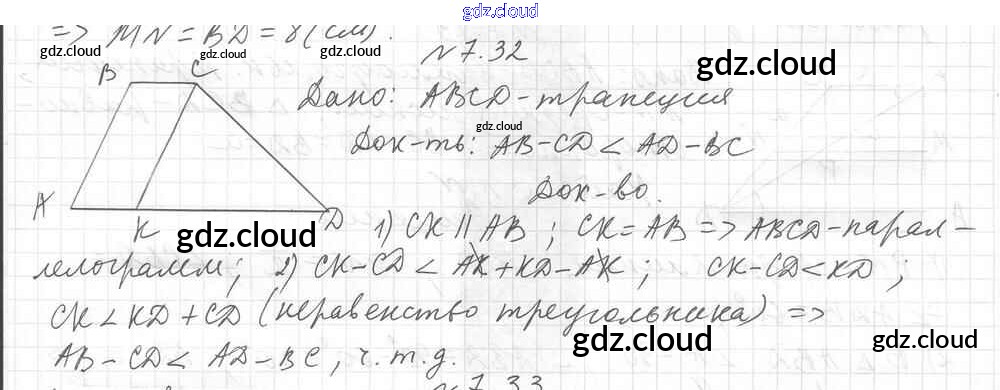 gdz.cloud
=> MN = BD = 8 (см).
gdz.cloud gdz.cloud gdz.cloud
№ 7.32
gdz.cloud
B C
Дано: ABCD - трапеция
gdz.cloud
Док-ть: AB - CD < AD - BC
Док-во.
A K D
1) CK || AB ; CK = AB => ABCD - парал-
gdz.cloud
лелограмм; 2) CK - CD < AK + KD - AK ; CK - CD < KD ;
CK < KD + CD (неравенство треугольника) =>
gdz.cloud gdz.cloud
AB - CD < AD - BC , ч.т.д.
№ 7.33